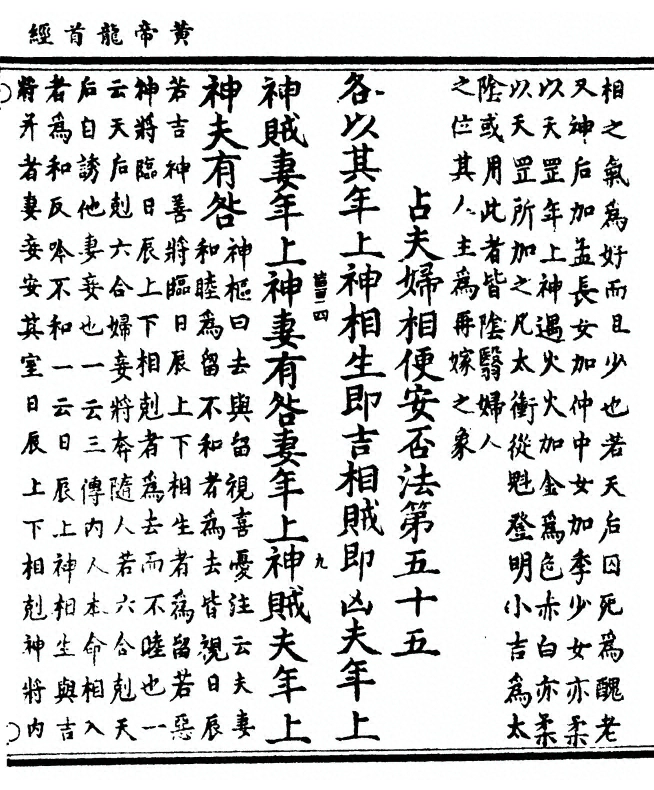 黃帝龍首經
相之氣為好而且少也若天后囚死為醜老
又神后加孟長女加仲中女加季少女亦柔
以天罡年上神遇火火加金為色赤白亦柔
以天罡所加之凡太衝從魁登明小吉為太
陰或用此者皆陰翳婦人
之位其人主為再嫁之象
占夫婦相便安否法第五十五
各以其年上神相生即吉相賊即凶夫年上
神賊妻年上神妻有咎妻年上神賊夫年上
神夫有咎
神樞曰去與留視喜憂注云夫妻
和睦為留不和者為去皆視日辰
若吉神善將臨日辰上下相生者為留若惡
神將臨日辰上下相剋者為去而不睦也一
云天后剋六合婦妾將奔隨人若六合剋天
后自誘他妻妾也一云三傳內人本命相入
者為和反吟不和一云日辰上神相生與吉
將并者妻妾安其室日辰上下相剋神將內
九